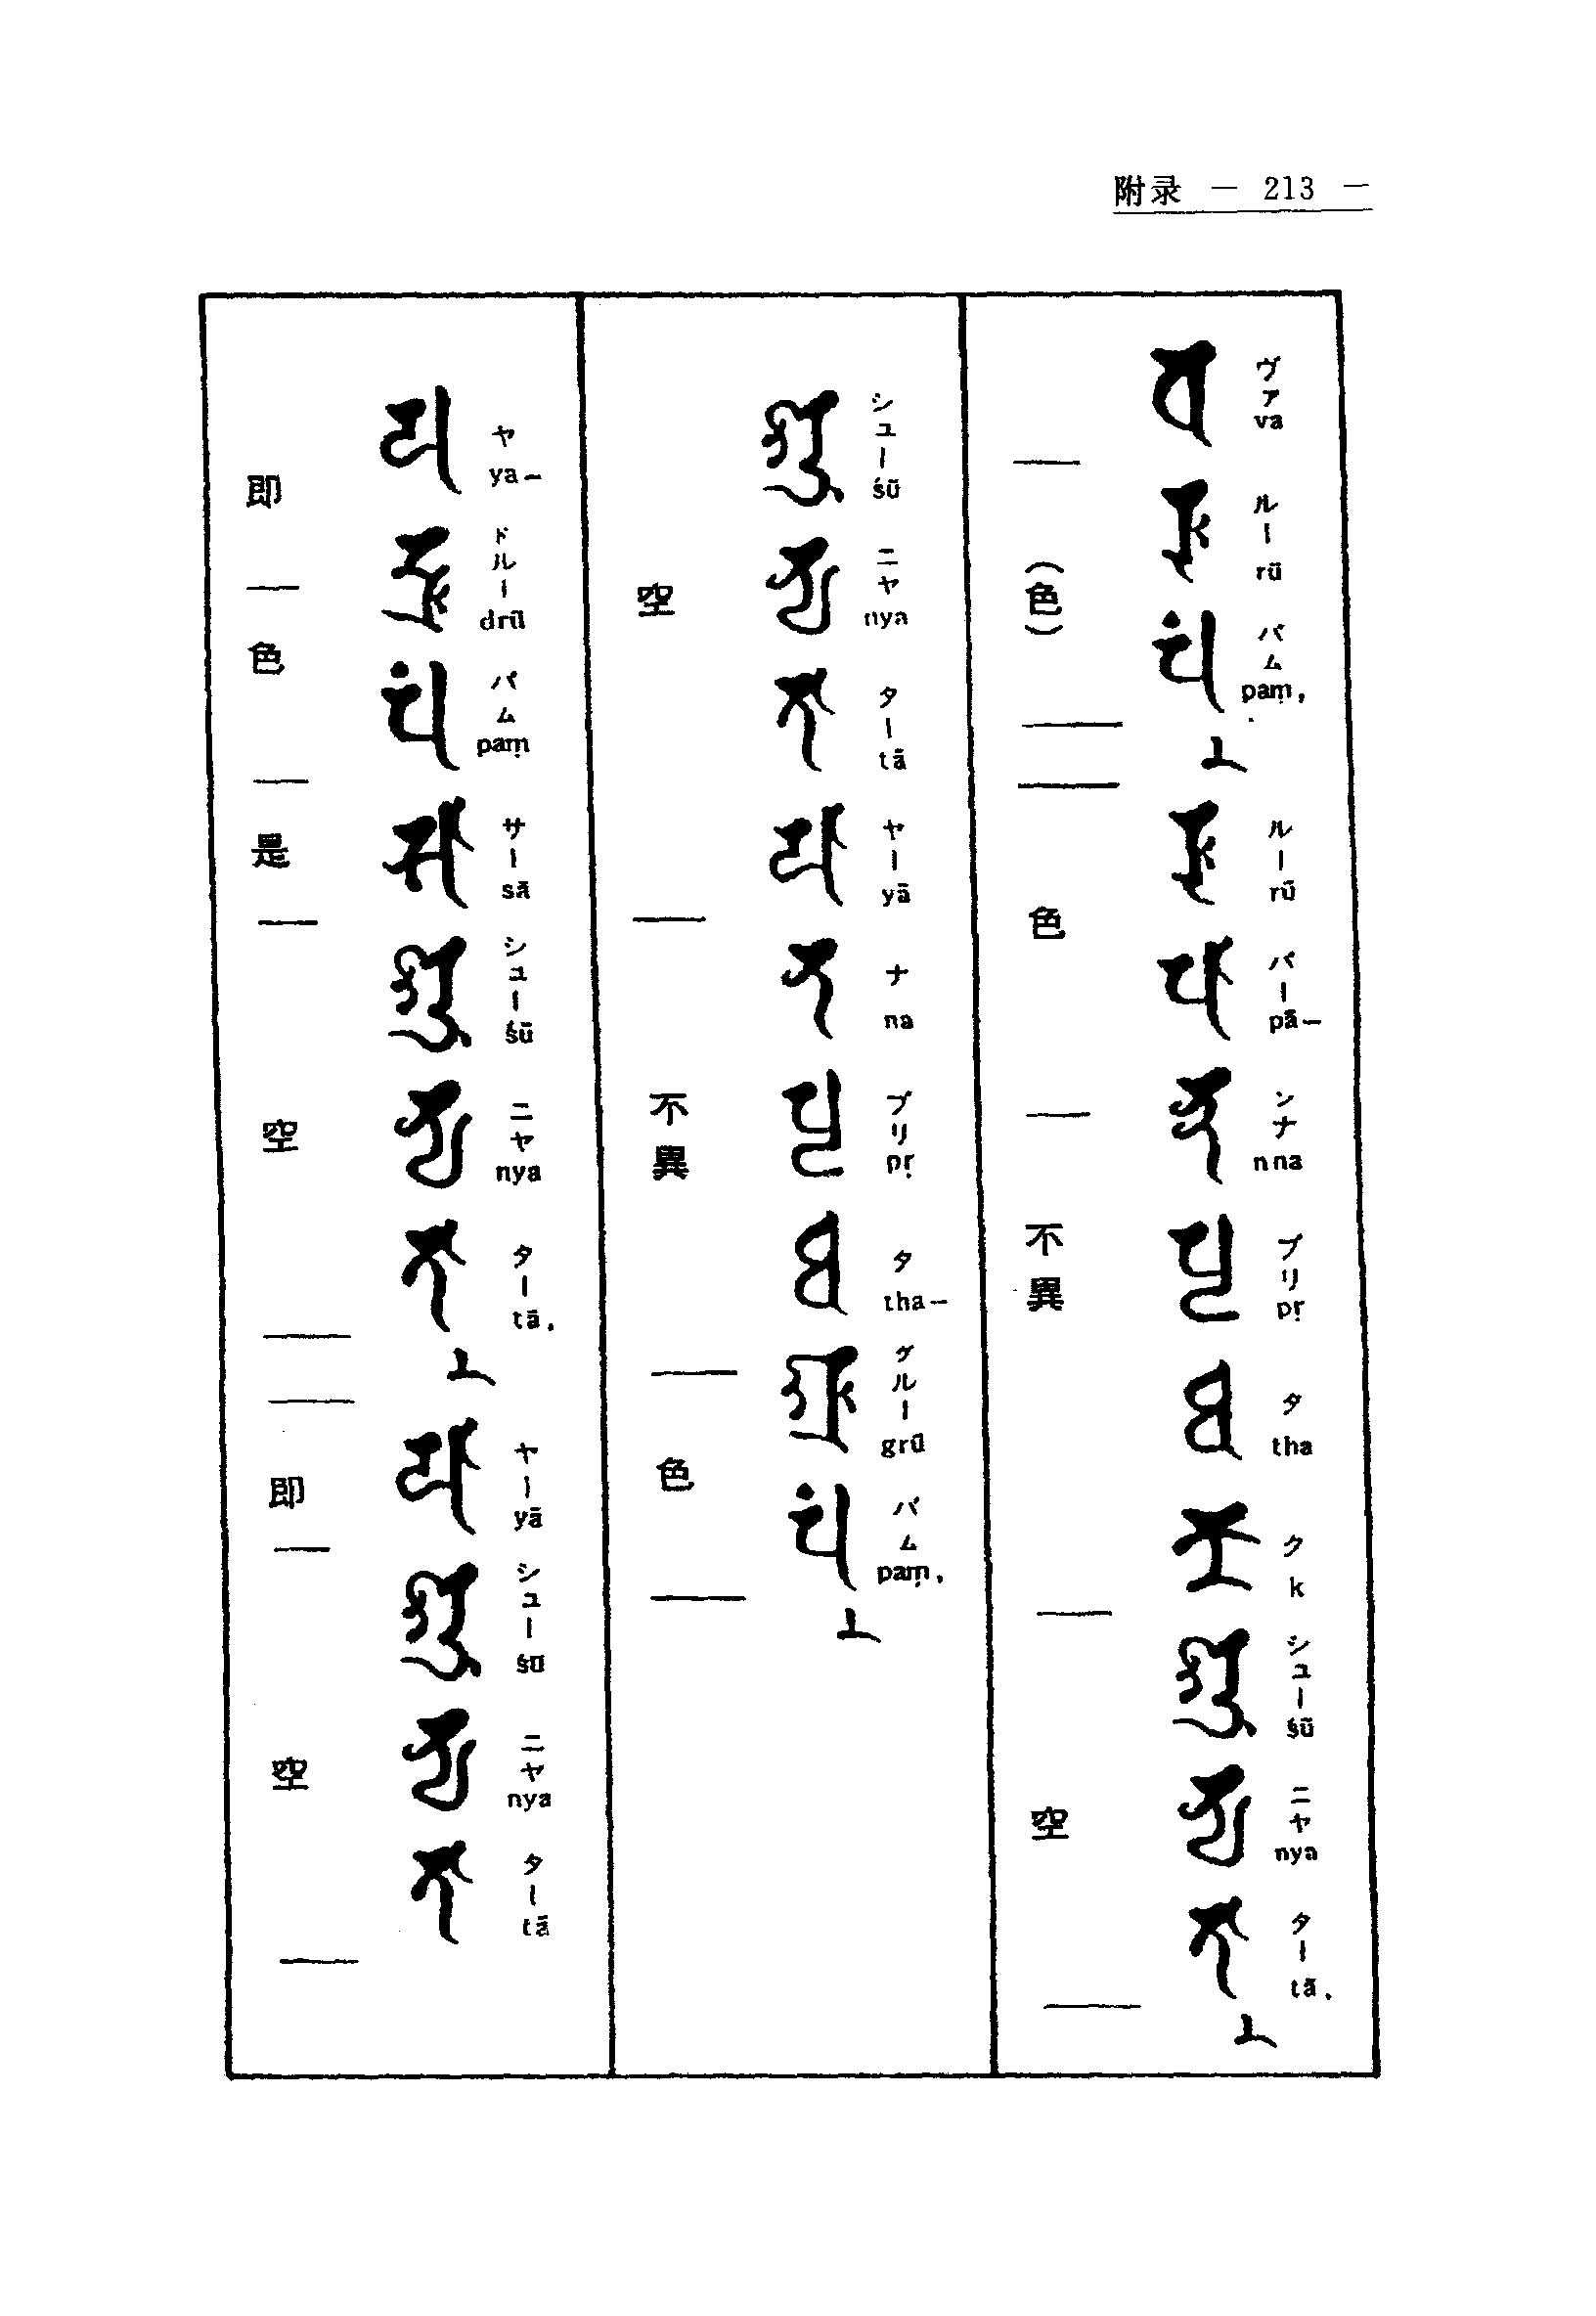 附录 — 213 —
ヴァ va ルー rū パム paṃ, ルー rū パー pā– ンナ nna プリ pṛ タ tha ク k シュー śū ニヤ nya ター tā,
𑖪 𑖨𑖳 𑖢𑖽 𑖨𑖳 𑖢𑖯 𑖡𑖿𑖡 𑖢𑖴 𑖞 𑖎𑖿 𑖫𑖳 𑖡𑖿𑖧 𑖝𑖯
(色) 色 不異 空
シュー śū ニヤ nya ター tā ヤー yā ナ na プリ pṛ タ tha– グルー grū パム paṃ,
𑖫𑖳 𑖡𑖿𑖧 𑖝𑖯 𑖧𑖯 𑖡 𑖢𑖴 𑖞 𑖐𑖿𑖨𑖳 𑖢𑖽
空 不異 色
ヤ ya– ドルー drū パム paṃ サー sā シュー śū ニヤ nya ター tā, ヤー yā シュー śū ニヤ nya ター tā
𑖧 𑖟𑖿𑖨𑖳 𑖢𑖽 𑖭𑖯 𑖫𑖳 𑖡𑖿𑖧 𑖝𑖯 𑖧𑖯 𑖫𑖳 𑖡𑖿𑖧 𑖝𑖯
即 色 是 空 即 空